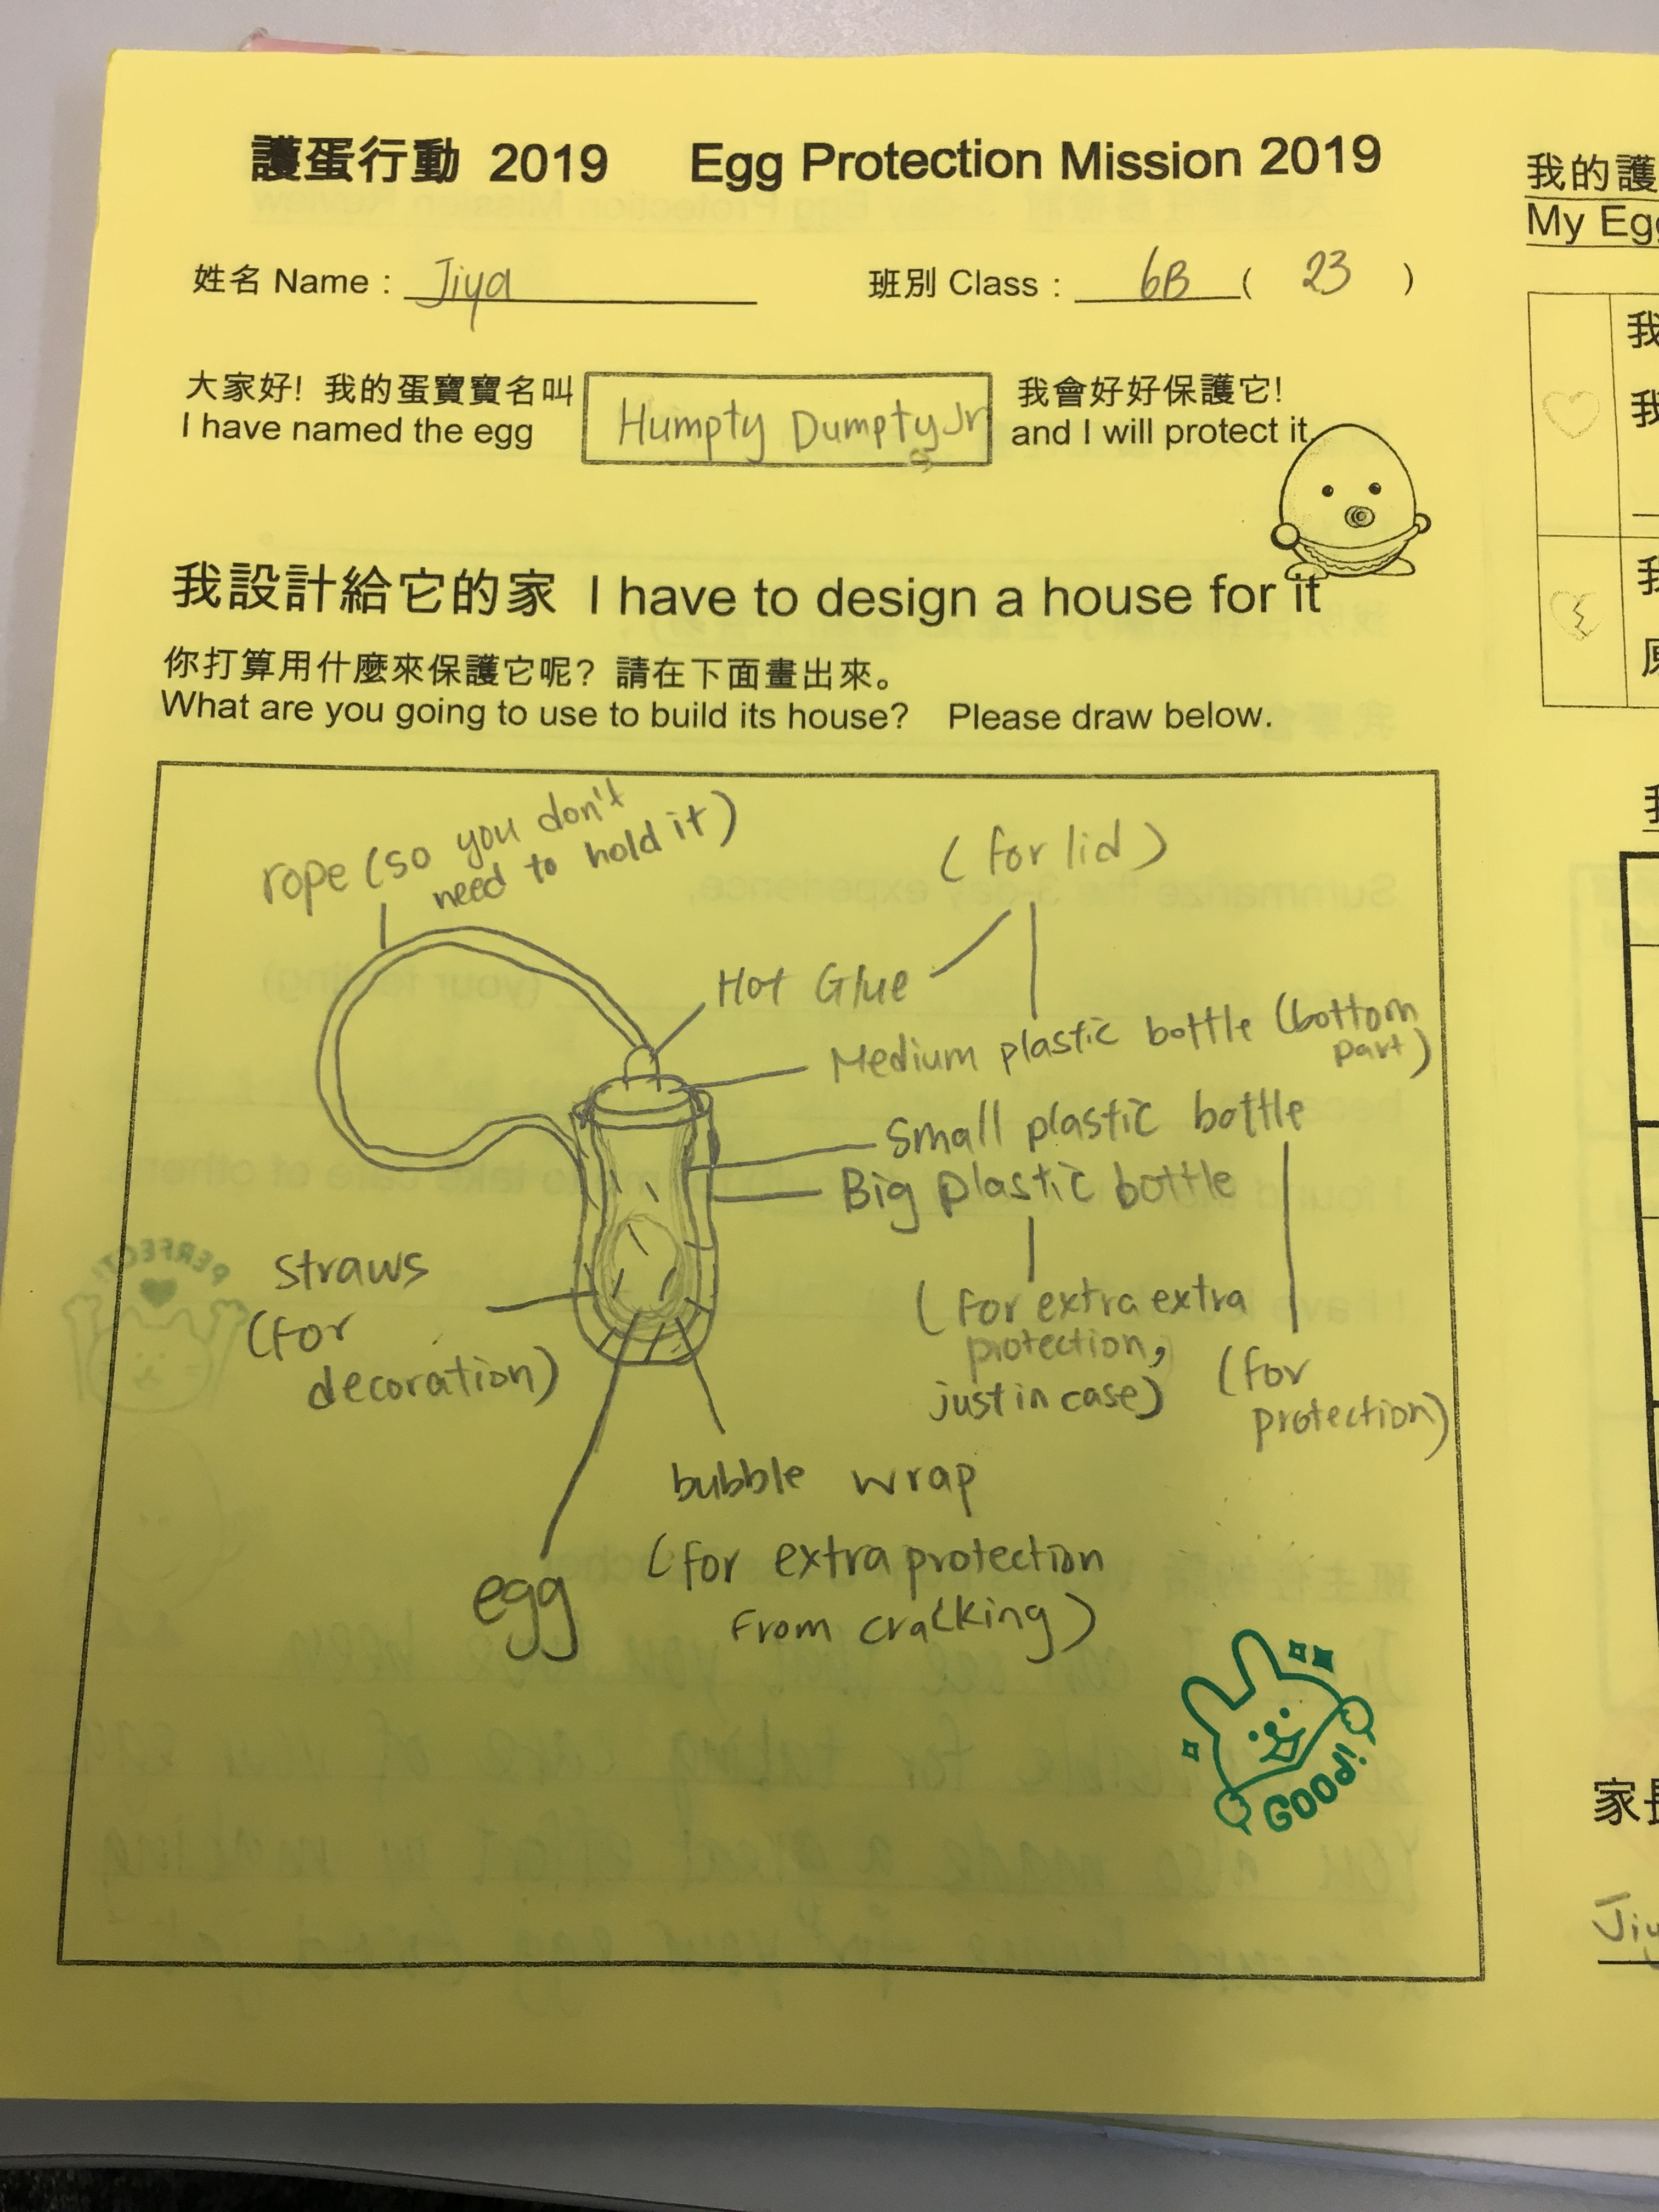 護蛋行動 2019 Egg Protection Mission 2019
姓名 Name : Jiya 班別 Class : 6B ( 23 )
大家好! 我的蛋寶寶名叫 Humpty Dumpty Jr 我會好好保護它!
I have named the egg and I will protect it.
我設計給它的家 I have to design a house for it
你打算用什麼來保護它呢? 請在下面畫出來。
What are you going to use to build its house? Please draw below.
rope (so you don't
need to hold it)
(for lid)
Hot Glue
Medium plastic bottle (bottom
part)
Small plastic bottle
Big plastic bottle
straws
(for
decoration)
(for extra extra
protection,
just in case)
(for
protection)
bubble wrap
(for extra protection
from cracking)
egg
GOOD!
我的護
My Egg
我
我
我
家長
Jiy